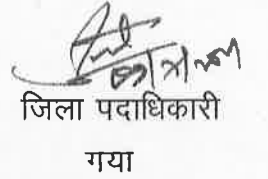 जिला पदाधिकारी
गया